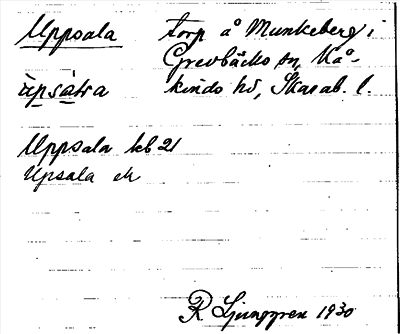 Uppsala torp å Munkeberg i
Grevbäcks sn, Kå-
ùpsàt̀ra kinds hd, Skarab. l.
Uppsala kb 21
Upsala ek
R Ljunggren 1930